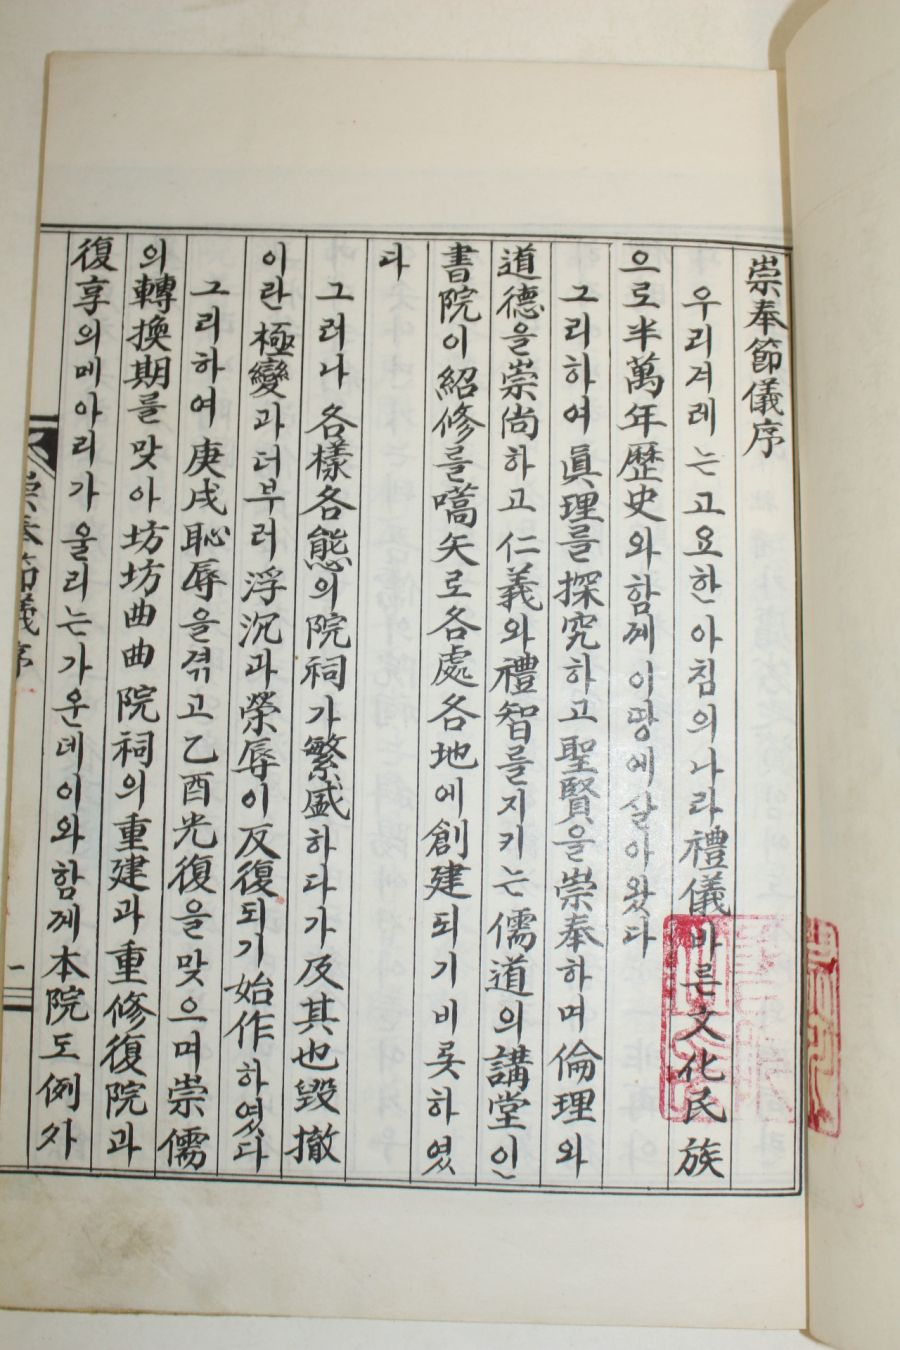 崇奉節儀序
우리겨레는고요한아침의나라禮儀바른文化民族
으로半萬年歷史와함께이땅에살아왔다
그리하여眞理를探究하고聖賢을崇奉하며倫理와
道德을崇尚하고仁義와禮智를지키는儒道의講堂인
書院이紹修를嚆矢로各處各地에創建되기비롯하였
다
그러나各樣各態의院祠가繁盛하다가及其也毁撤
이란極變과더부러浮沉과榮辱이反復되기始作하였다
그리하여庚戌恥辱을겪고乙酉光復을맞으며崇儒
의轉換期를맞아坊坊曲曲院祠의重建과重修復院과
復享의메아리가울리는가운데이와함께本院도例外
崇奉節儀序
一